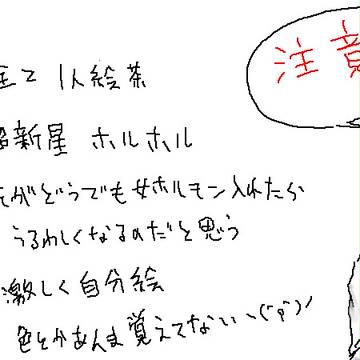 注意
全て 1人絵茶
新星 ホルホル
がどうでも女ホルモン入れたら
うるわしくなるのだと思う
激しく自分絵
色とかあんま覚えてない